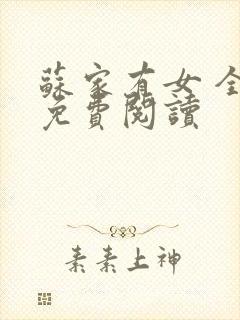 蘇家有女 全
免費閱讀
素素上神